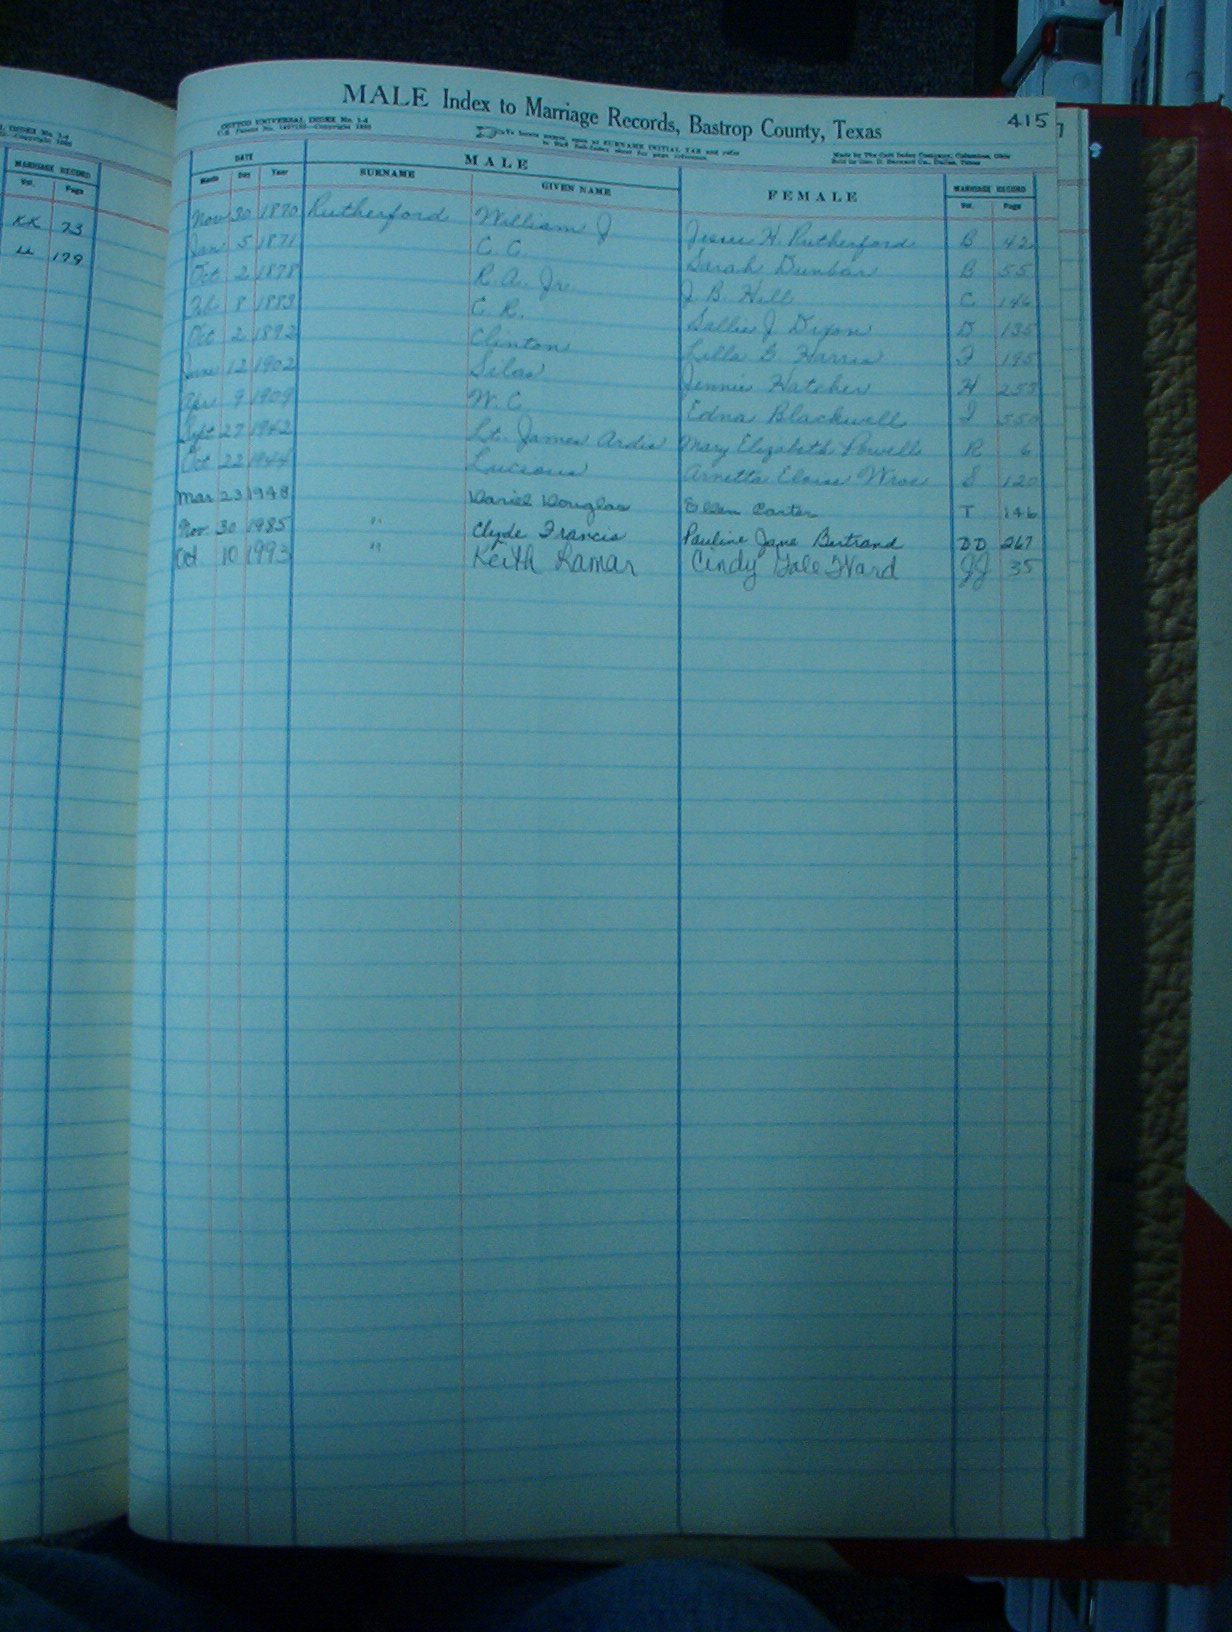 L INDEX No. 3-4
MARRIAGE RECORD
Vol. Page
KK 73
LL 179
MALE Index to Marriage Records, Bastrop County, Texas 415
COTTCO UNIVERSAL INDEX No. 3-4
To locate names, open at SURNAME INITIAL TAB and refer
to Sub-Index sheet for page reference
Made by The Cott Index Company, Columbus, Ohio
DATE MALE FEMALE MARRIAGE RECORD
Month Day Year SURNAME GIVEN NAME Vol. Page
Nov 30 1870 Rutherford William J Jesse H. Rutherford B 42
Jan 5 1871 C. C. Sarah Dunbar B 55
Oct 2 1878 R. A. Jr. J. B. Hill C 146
Feb 8 1883 C. R. Sallie J Dixon D 135
Oct 2 1892 Clinton Lilla G Harris F 195
June 12 1902 Silas Jennie Hatcher H 253
Apr 9 1909 W. C. Edna Blackwell I 550
Sept 27 1942 Lt. James Ardis Mary Elizabeth Powell R 6
Oct 22 1944 Lucious Arnetta Eloise Wroe S 120
Mar 23 1948 Daniel Douglas Ellen Carter T 146
Nov 30 1985 " Clyde Francis Pauline Jane Bertrand DD 267
Oct. 10 1993 " Keith Lamar Cindy Gale Ward JJ 35